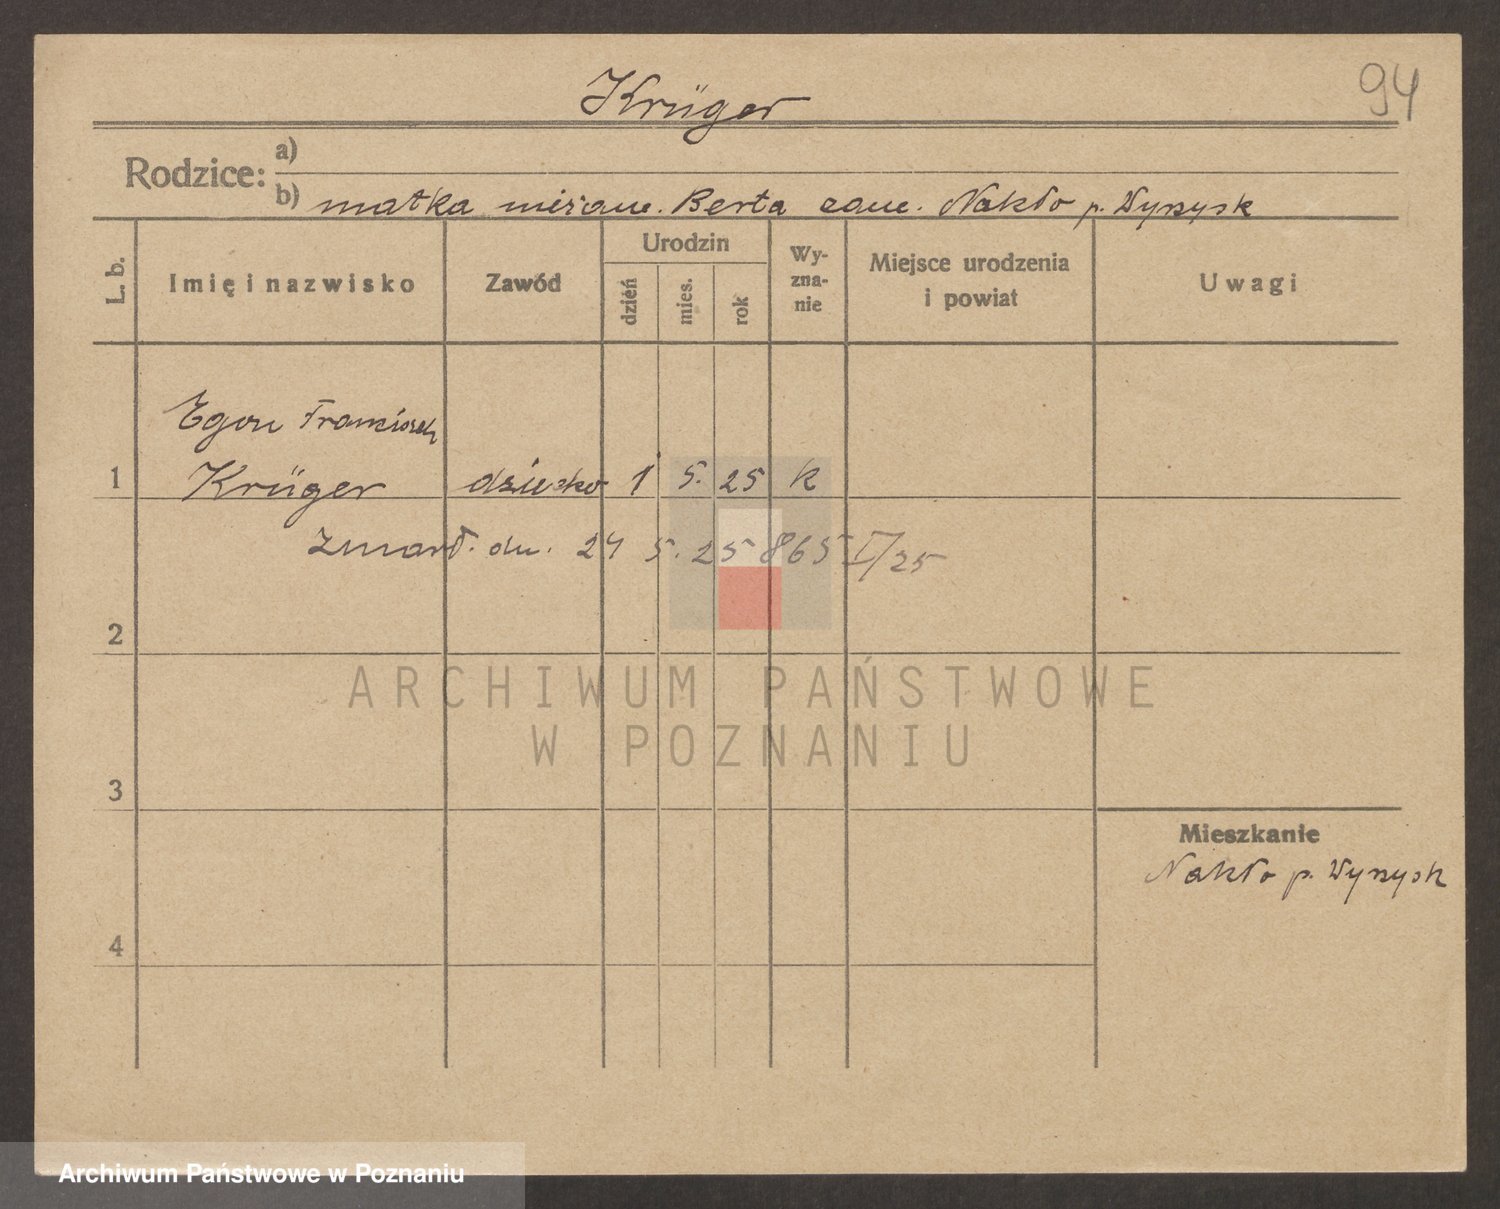 Krüger
94
Rodzice:
a)
b) matka niezam. Berta zam. Nakło p. Wyrzysk
L. b.
Imię i nazwisko
Zawód
Urodzin
dzień
mies.
rok
Wy-
zna-
nie
Miejsce urodzenia
i powiat
Uwagi
Egon Franciszek
1 Krüger dziecko 1 5. 25 k
Zmarł. dn. 24 5. 25 865 I/25
2
ARCHIWUM PAŃSTWOWE
W POZNANIU
3
Mieszkanie
Nakło p. Wyrzysk
4
Archiwum Państwowe w Poznaniu